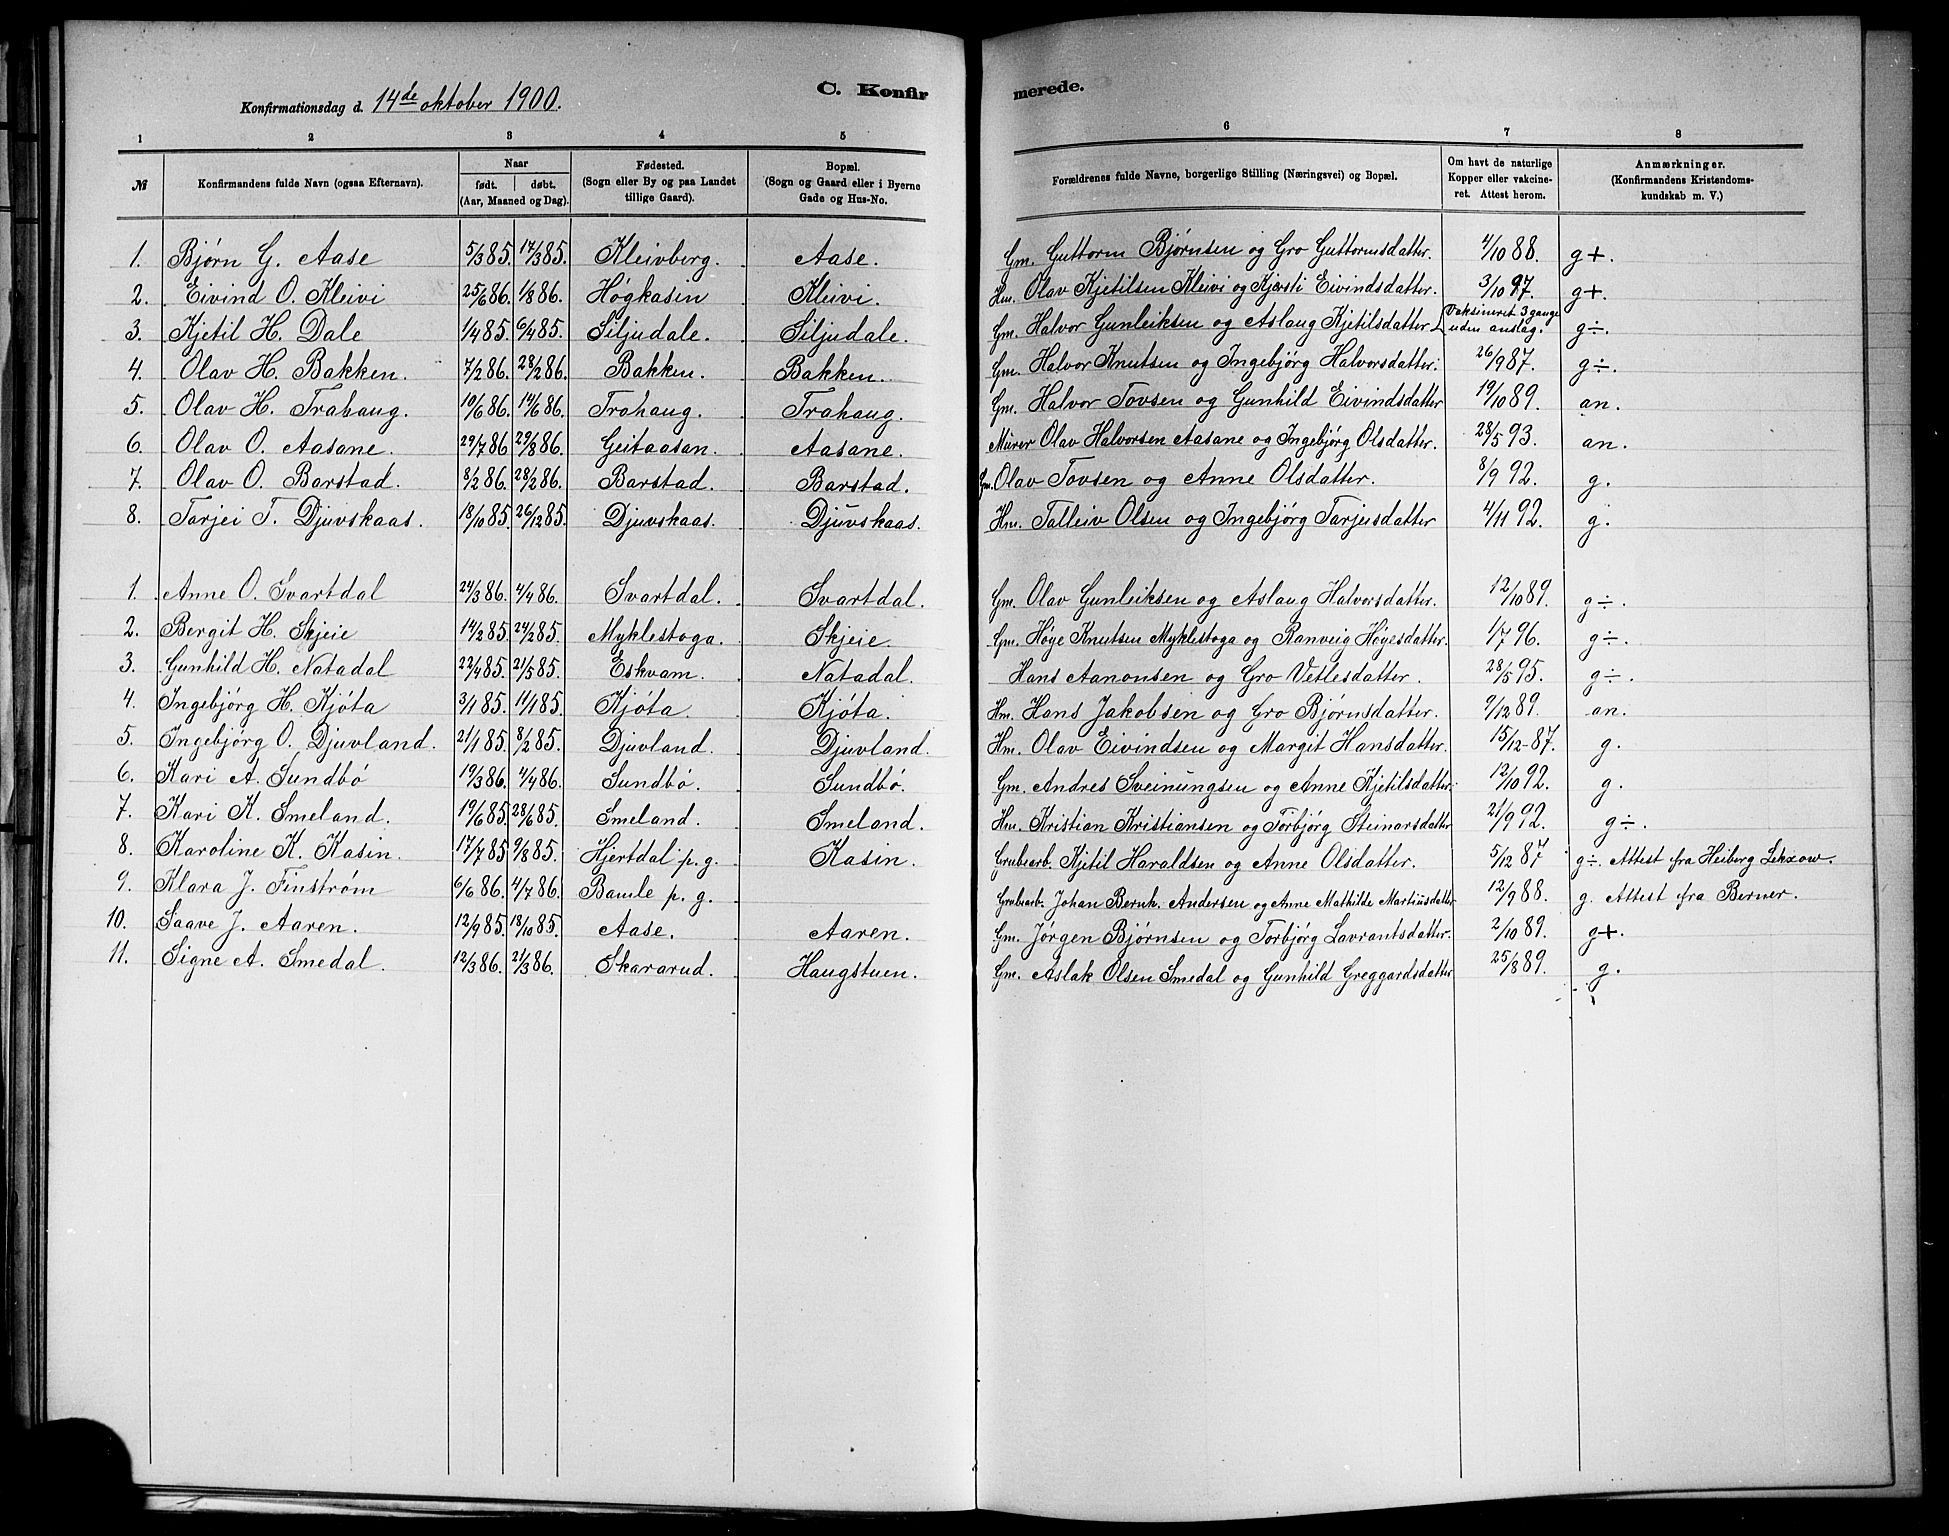 Konfirmationsdag d. 14de oktober 1900.
C. Konfirmerede.
1 2 3 4 5 6 7 8
№ Konfirmandens fulde Navn (ogsaa Efternavn). Naar født. døbt. (Aar, Maaned og Dag). Fødested. (Sogn eller By og paa Landet tillige Gaard). Bopæl. (Sogn og Gaard eller i Byerne Gade og Hus-No. Forældrenes fulde Navne, borgerlige Stilling (Næringsvei) og Bopæl. Om havt de naturlige Kopper eller vakcineret. Attest herom. Anmærkninger. (Konfirmandens Kristendomskundskab m. V.)
1. Bjørn G. Aase 5/3 85. 17/3 85. Kleivberg. Aase. Gm. Guttorm Bjørnsen og Gro Guttormsdatter. 4/10 88. g+.
2. Eivind O. Kleivi 25/6 86. 1/8 86. Høgkasin Kleivi. Hm. Olav Kjetilsen Kleivi og Kjersti Eivindsdatter. 3/10 97. g+.
3. Kjetil H. Dale 1/4 85. 6/4 85. Siljudale. Siljudale. Gm. Halvor Gunleiksen og Aslaug Kjetilsdatter Vaksineret 3 gange uden anslag. g÷.
4. Olav H. Bakken. 7/2 86. 28/2 86. Bakken. Bakken. Gm. Halvor Knutsen og Ingebjörg Halvorsdatter. 26/9 87. g÷.
5. Olav H. Trahaug. 10/6 86. 14/6 86. Trahaug. Trahaug. Gm. Halvor Tovsen og Gunhild Eivindsdatter 19/10 89. an.
6. Olav O. Aasane. 29/7 86 29/8 86. Geitaasan. Aasane. Murer Olav Halvorsen Aasane og Ingebjörg Olsdatter. 28/5 93. an.
7. Olav O. Barstad. 8/2 86. 28/2 86. Barstad. Barstad. Gm. Olav Tovsen og Anne Olsdatter. 8/9 92. g.
8. Tarjei T. Djuvskaas. 18/10 85. 26/12 85. Djuvskaas. Djuvskaas. Hm. Talleiv Olsen og Ingebjörg Tarjeisdatter 4/11 92. g.
1. Anne O. Svartdal 24/3 86. 4/4 86. Svartdal. Svartdal. Gm. Olav Gunleiksen og Aslaug Halvorsdatter. 12/10 89. g÷.
2. Bergit H. Skjeie 14/2 85. 24/2 85. Myklestoga. Skjeie. Gm. Høye Knutsen Myklestoga og Ranveig Høyesdatter. 1/7 96. g÷.
3. Gunhild H. Natadal 22/4 85. 21/5 85. Eskvam. Natadal. Hans Aanonsen og Gro Vetlesdatter. 28/5 95. g÷.
4. Ingebjörg H. Kjöta 3/1 85. 11/1 85. Kjöta. Kjöta. Hm. Hans Jakobsen og Gro Bjørnsdatter. 9/12 89. an.
5. Ingebjörg O. Djuvland. 21/1 85. 8/2 85. Djuvland. Djuvland. Hm. Olav Eivindsen og Margit Hansdatter. 15/12-87. g.
6. Kari A. Sundbö 19/3 86. 4/4 86. Sundbö. Sundbö. Gm. Andres Sveinungsen og Anne Kjetilsdatter. 12/10 92. g.
7. Kari K. Smeland. 19/6 85. 28/6 85. Smeland. Smeland. Hm. Kristian Kristiansen og Torbjörg Steinarsdatter 21/9 92. g÷.
8. Karoline K. Kasin. 17/7 85. 9/8 85. Hjertdal p. g. Kasin. Grubearb. Kjetil Haraldsen og Anne Olsdatter. 5/12 87 g÷. Attest fra Heiberg Lekxow.
9. Klara J. Finström 6/6 86. 4/7 86. Bamle p. g. Grubearb. Johan Bernh. Andersen og Anne Mathilde Martinsdatter 12/9 88. g. Attest fra Berner.
10. Saave J. Aaren. 12/9 85. 18/10 85. Aase. Aaren. Gm. Jörgen Bjørnsen og Torbjörg Lavrantsdatter. 2/10 89. g+.
11. Signe A. Smedal. 12/3 86. 21/3 86. Skararud. Haugstuen. Gm. Aslak Olsen Smedal og Gunhild Greggardsdatter 25/8 89. g.